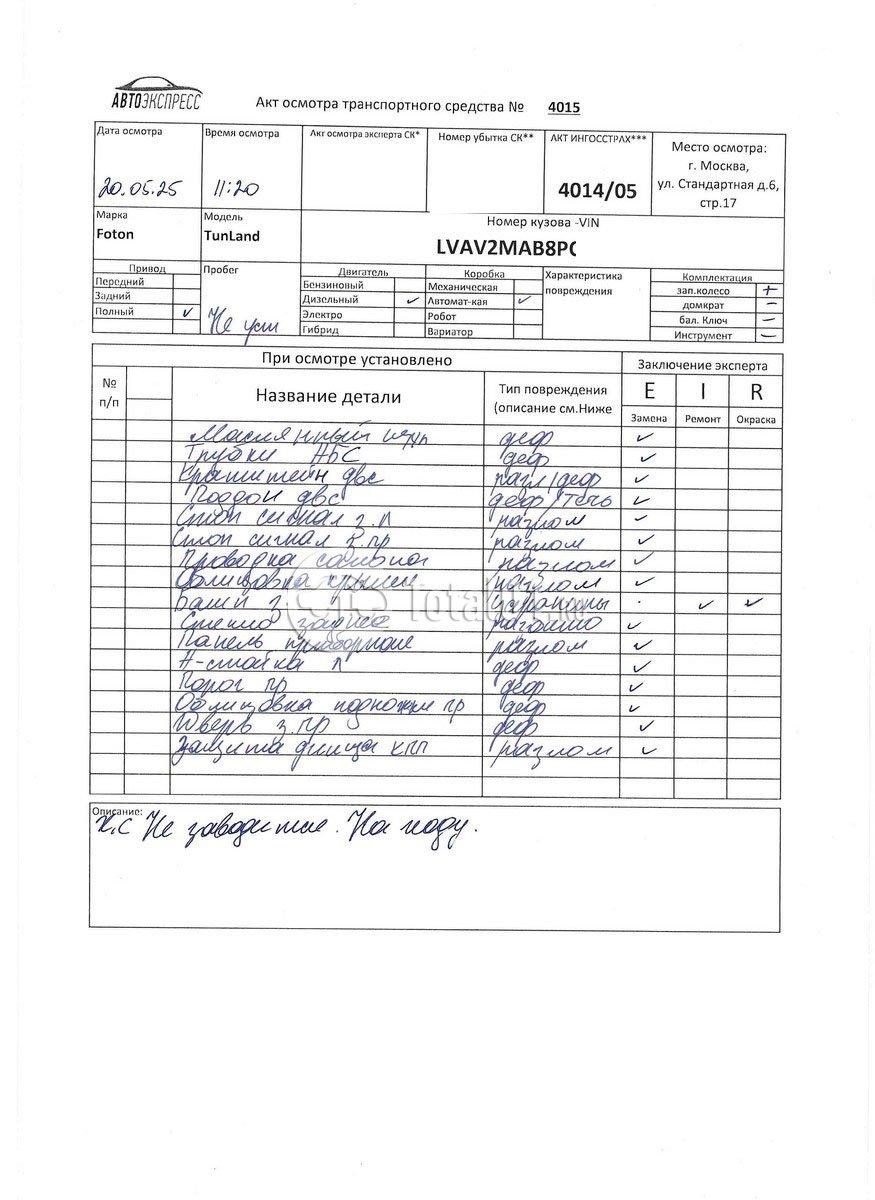 АВТОЭКСПРЕСС
Акт осмотра транспортного средства № 4015
Дата осмотра
20.05.25
Время осмотра
11:20
Акт осмотра эксперта СК*
Номер убытка СК**
АКТ ИНГОССТРАХ***
4014/05
Место осмотра:
г. Москва,
ул. Стандартная д.6,
стр.17
Марка
Foton
Модель
TunLand
Номер кузова -VIN
LVAV2MAB8P
Привод
Передний
Задний
Полный ✓
Пробег
Не уст
Двигатель
Бензиновый
Дизельный ✓
Электро
Гибрид
Коробка
Механическая
Автомат-кая ✓
Робот
Вариатор
Характеристика
повреждения
Комплектация
зап.колесо +
домкрат –
бал. Ключ –
Инструмент –
При осмотре установлено
Заключение эксперта
№
п/п
Название детали
Тип повреждения
(описание см.Ниже
E I R
Замена Ремонт Окраска
Маслянный щуп деф ✓
Трубки АБС деф ✓
Кронштейн двс разл/деф ✓
Поддон двс деф/течь ✓
Стоп сигнал з.л разлом ✓
Стоп сигнал з.пр разлом ✓
Проводка разлом ✓
Облицовка крыши разлом ✓
з царапаны ✓ ✓
Стекло заднее ✓
Панель приборная разлом ✓
А-стойка л деф ✓
Порог пр деф ✓
Облицовка подножки пр деф ✓
Дверь з.пр деф ✓
Защита днища кпп разлом ✓
Описание:
Не заводится. На ходу.
Total